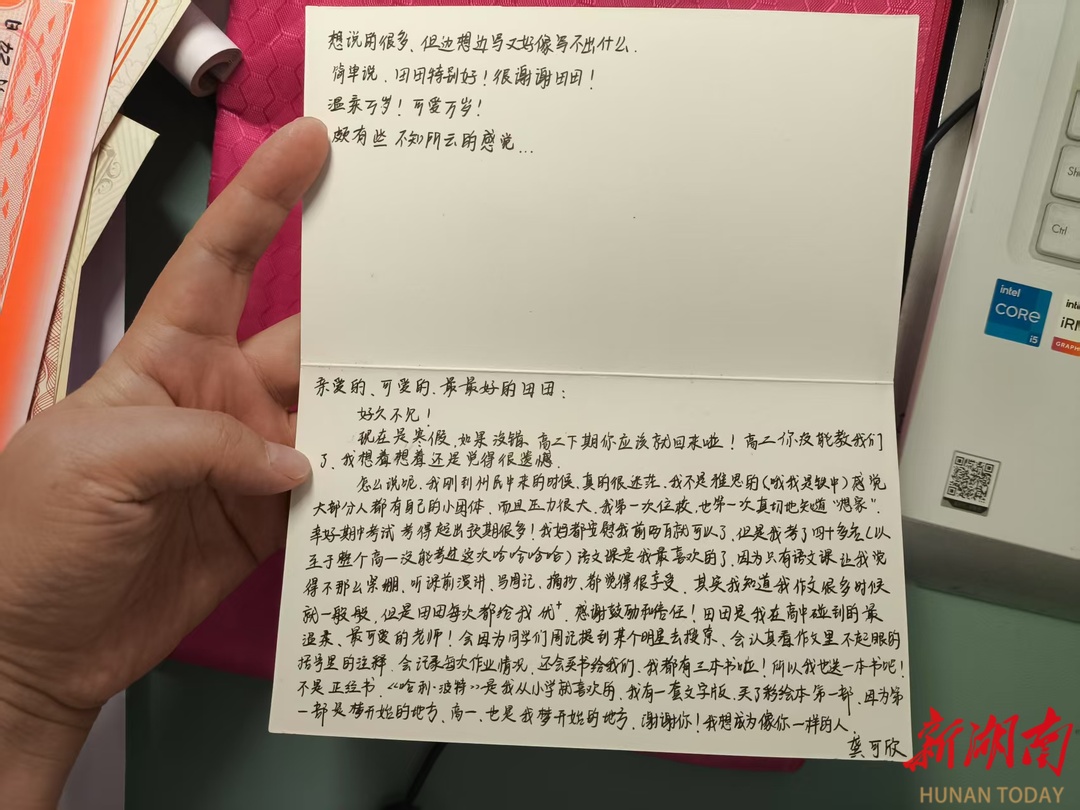 想说的很多、但边想边写又好像写不出什么.
简单说、田田特别好！很谢谢田田！
温柔万岁！可爱万岁！
颇有些 不知所云的感觉...
亲爱的、可爱的、最最好的田田：
好久不见！
现在是寒假、如果没错、高二下期你应该就回来啦！高二你没能教我们
了、我想着想着还是觉得很遗憾.
怎么说呢、我刚到州民中来的时候、真的很迷茫、我不是雅思的（哦我是缺中）感觉
大部分人都有自己的小团体、而且压力很大、我第一次住校、也第一次真切地知道“想家”.
幸好期中考试 考得超出预期很多！我妈都安慰我前两百就可以了、但是我考了四十多名（以
至于整个高一没能考过这次哈哈哈哈）语文课是我最喜欢的了、因为只有语文课让我觉
得不那么紧绷、听课前演讲、写周记、摘抄、都觉得很享受、其实我知道我作文很多时候
就一般般、但是田田每次都给我优+、感谢鼓励和信任！田田是我在高中碰到的最
温柔、最可爱的老师！会因为同学们周记提到某个明星去搜索、会认真看作文里不起眼的
括号里的注释、会记录每次作业情况、还会买书给我们、我都有三本书啦！所以我也送一本书吧！
不是正经书、《哈利·波特》是我从小学就喜欢的、我有一套文字版、买了彩绘本第一部、因为第
一部是梦开始的地方、高一、也是我梦开始的地方、谢谢你！我想成为像你一样的人.
龚可欣
intel
CORE
i5
Ctrl
新湖南
HUNAN TODAY